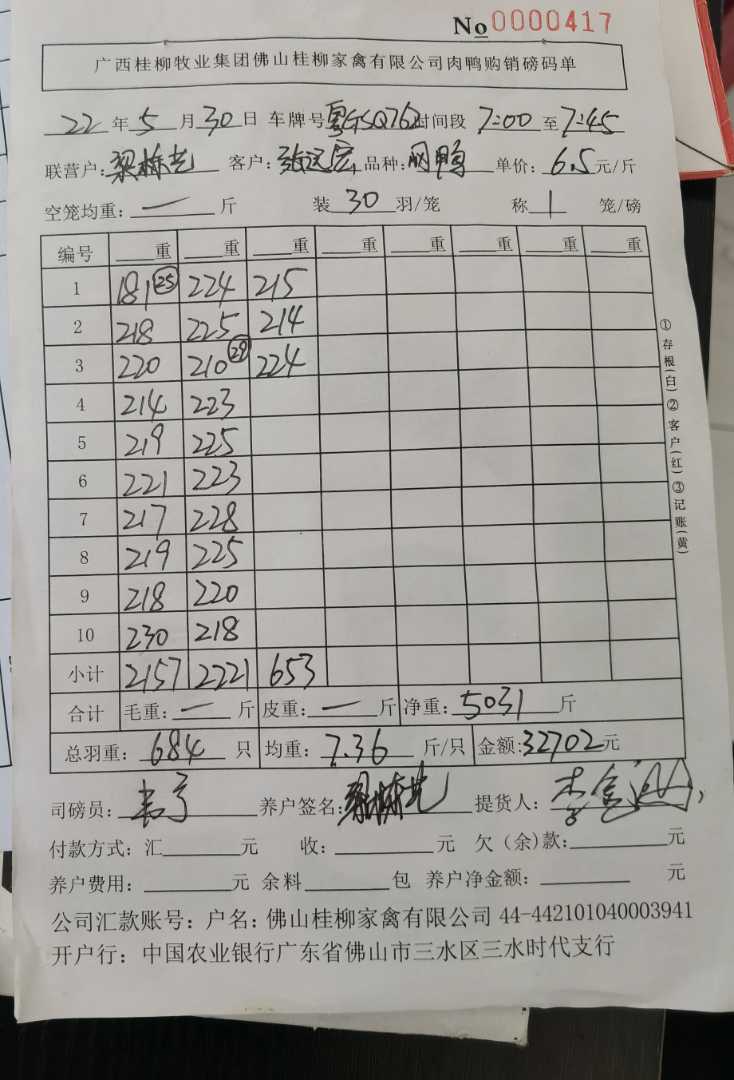 No 0000417
广西桂柳牧业集团佛山桂柳家禽有限公司肉鸭购销磅码单
22年5月30日 车牌号粤GSQ762时间段 7:00至7:45
联营户: 客户: 品种: 鸭 单价: 6.5元/斤
空笼均重: 一 斤 装 30 羽/笼 称 1 笼/磅
编号 重 重 重 重 重 重 重 重
1 181 25 224 215
2 218 225 214
3 220 210 29 224
4 214 223
5 219 225
6 221 223
7 217 228
8 219 225
9 218 220
10 230 218
小计 2157 2221 653
合计 毛重: 一 斤 皮重: 一 斤 净重: 5031 斤
总羽重: 684 只 均重: 7.36 斤/只 金额: 32702元
司磅员: 养户签名: 提货人:
付款方式: 汇 元 收: 元 欠(余)款: 元
养户费用: 元 余料 包 养户净金额: 元
公司汇款账号: 户名: 佛山桂柳家禽有限公司 44-442101040003941
开户行: 中国农业银行广东省佛山市三水区三水时代支行
①存根(白)②客户(红)③记账(黄)